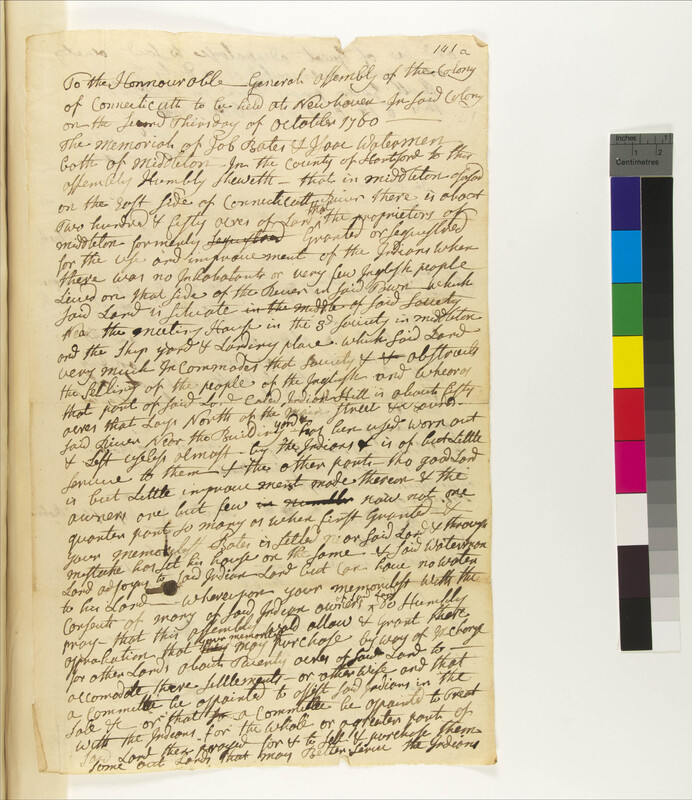 141a
To the Honnourable General assembly of the Colony
of Connecticutt to be held at Newhaven In Said Colony
on the Second Thirsday of October 1760
The memorial of Job Bates & Isaac Watermen
both of middleton In the County of Hartford to this
assembly Humbly Sheweth that in middleton aforsd
on the East Side of Connecticutt River there is about
Two hundred & fifty acres of Land that the proprietors of
middleton formerly Granted or Sequestred
for the use and improuement of the Indians when
there was no Inhabatants or very few Inglesh people
Liued on that Side of the Riuer in Said Town which
Said Land is Situate in the middle of Said Society
the meeting House in the 3d Society in middleton
and the Ship yard & Landing place which Said Land
very much Incommodes that Society & obstructs
the Setling of the people of the Inglish and wheras
that part of Said Land Caled Indian Hill is about fifty
acres that Lays North of the main Street
Said Riuer Near the Building yard has ben used worn out
& Left useless almost by the Indians & is of but Little
Seruice to them & the other part tho good Land
is but Little improue ment made thereon & the
owners are but few in number now not one
quarter part So many as when first Granted &
your memorilest Bates is Setled on Said Land & through
mystake has Set his house on the Same & Said Waterman
Land adjoyns to Said Indian Land but Can have no water
to his Land Whereupon your memorilest with the
Consent of many of Said Indian owners of Sd Land do Humbly
pray that this assembly would allow & Grant there
aprobation that your memorilest may purchase by way of Exchange
for other Lands about Twenty acres of Said Land to
accomodate there Settlements or other wise and that
a Committe be appointed to assist Said Indians in the
Sale &c or that a Committe be appointed to treat
with the Indians for the whole or a greater part of
Said Land then prayed for & to Sell & purchase them
Some out Lands that may Better Serue the Indians